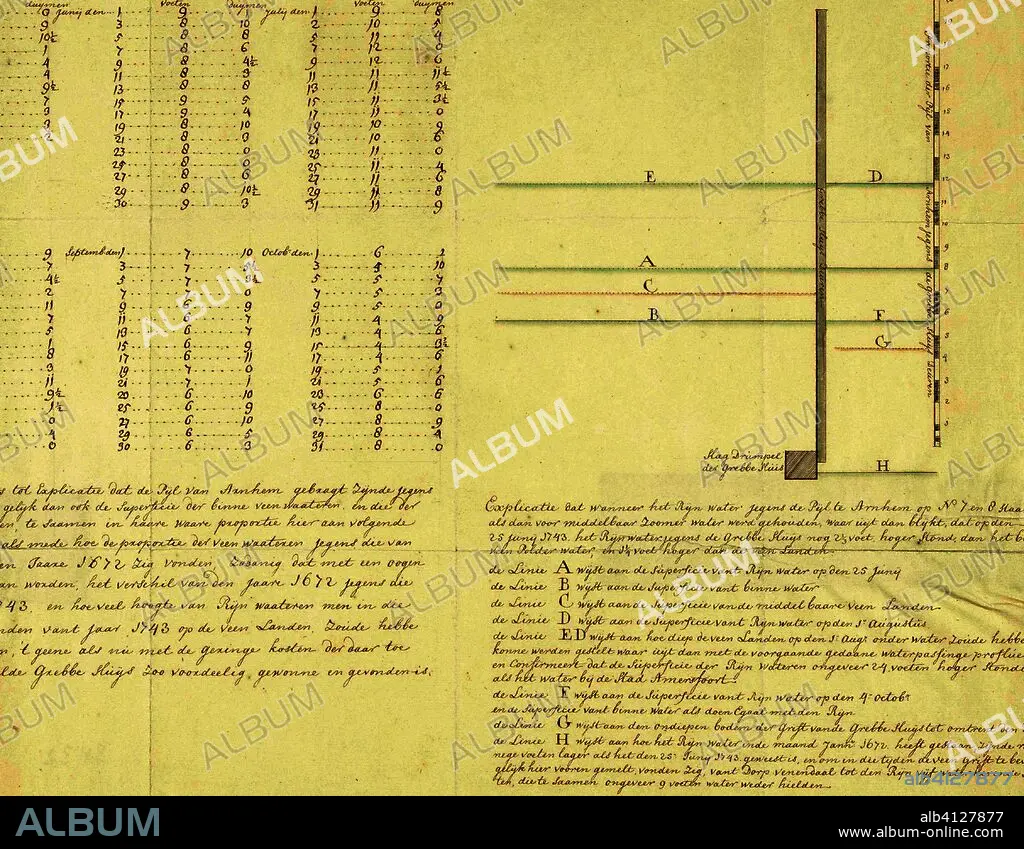 duymen voeten duymen voeten duymen
9 junij den 1 9 1 julij den 1 9 8
9 3 8 10 2 10 5
10½ 5 8 8 5 11 4
1 7 8 6 7 12 0
4 9 8 4½ 9 12 6
4 11 8 3 11 11 11½
9½ 13 8 8 13 11 5½
7 15 9 5 15 11 3½
3 17 9 4 17 11 0
9 19 8 10 19 10 9
2 21 8 3 21 10 6
23 8 0 23 11 0
25 8 0 25 11 4
27 8 6 27 11 6
29 8 10½ 29 11 8
30 9 3 31 11 9
9 Septemb den 1 7 10 Octob den 1 6 2
7 3 7 3 5 10
4½ 5 7 5 5 7
2 7 7 0 7 5 3
11 9 6 9 5 0
7 11 6 7 11 4 9
5 13 6 7 13 4 6
1 15 6 9 15 4 3½
8 17 6 11 17 4 6
3 19 7 0 19 5 1
11 21 7 1 21 5 6
9½ 23 6 10 23 6 6
1½ 25 6 9 25 8 0
0 27 6 10 27 8 9
4 29 6 5 29 8 4
0 30 6 3 31 8 0
E D
A
C
B F
G
H
Grebbe Sluys
Arnhem jegens de Grebbe Sluys
17
16
15
13
12
11
10
9
8
7
6
5
4
3
2
1
Slag Drumpel
der Grebbe Sluis
s tot Explicatie dat de Pijl van Arnhem gebragt zijnde jegens
gelijk dan ook de Superficie der binne veen waateren, en die der
en, te Saamen in haare waare proportie hier aan volgende
als mede hoe de proportie der veen waateren jegens die van
en Jaare 1672 zig vonden, Zodanig dat met een oogen
an worden, het verschil van den jaare 1672 jegens die
43, en hoe veel hoogte van Rijn waateren men in die
nden vant jaar 1743 op de veen Landen, Zoude hebbe
en, 't geene als nu met de geringe kosten der daar toe
lde Grebbe Sluijs Zoo voordeelig, gewonne en gevonden is.
Explicatie dat wanneer het Rijn water jegens de Pijl te Arnhem op N° 7 en 8 Staa
als dan voor middelbaar Zoomer water werd gehouden, waar uijt dan blijkt, dat op den
25 junij 1743. het Rijn water jegens de Grebbe Sluijs nog 2½ voet, hoger Stond, dan het b
veen Polder water, en 1½ voet hoger dan de veen Landen
de Linie A wijst aan de Superficie vant Rijn water op den 25 Junij
de Linie B wijst aan de Superficie vant binne water
de Linie C wijst aan de Superficie van de middelbaare veen Landen
de Linie D wijst aan de Superficie vant Rijn water op den 1e Augustus
de Linie ED wijst aan hoe diep de veen Landen op den 1e Aug: onder water Zoude hebbe
konne werden gestelt waar uijt dan met de voorgaande gedaane waterpassinge proflue
en Confirmeert dat de Superficie der Rijn wateren ongeveer 24 voeten hoger Stonde
als het water bij de Stad Amersfoort.
de Linie F wijst aan de Superficie vant Rijn water op den 4e octobr
en de Superficie vant binne water als doen Egaal met den Rijn
de Linie G wijst aan den ondiepen bodem der Grift van de Grebbe Sluijs tot omtrent den
de Linie H wijst aan hoe het Rijn water inde maand Janr 1672. heeft
nege voeten lager als het den 25e Junij 1743 geweest is, en om in die tijden de veen Grift te be
gelijk hier vooren gemelt, vonden Zig, vant Dorp venendaal tot den Rijn vijf
ten, die te Saamen ongeveer 9 voeten water weder hielden
ALBUM
alb4127877
www.album-online.com